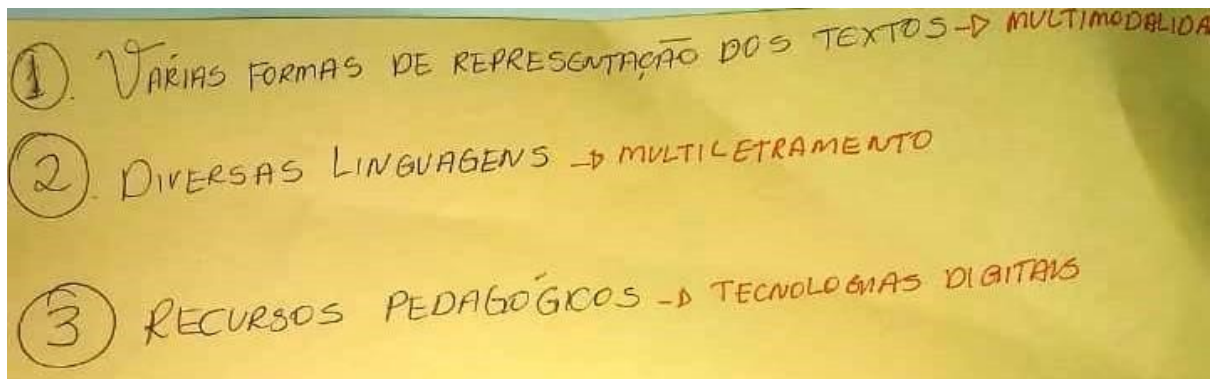 1. VÁRIAS FORMAS DE REPRESENTAÇÃO DOS TEXTOS → MULTIMODALIDA
2. DIVERSAS LINGUAGENS → MULTILETRAMENTO
3 RECURSOS PEDAGÓGICOS → TECNOLOGIAS DIGITAIS